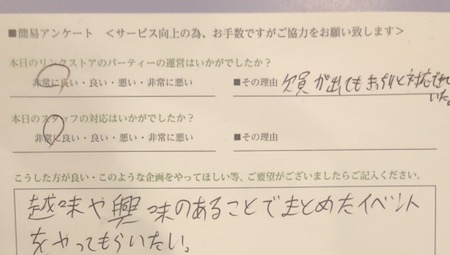 ■簡易アンケート <サービス向上の為、お手数ですがご協力をお願い致します>
本日のリンクストアのパーティーの運営はいかがでしたか？
非常に良い・良い・悪い・非常に悪い ■その理由 欠員が出てもきちんと対応されて
いた。
本日のスタッフの対応はいかがでしたか？
非常に良い・良い・悪い・非常に悪い ■その理由
こうした方が良い・このような企画をやってほしい等、ご要望がございましたらご記入ください。
趣味や興味のあることでまとめたイベント
をやってもらいたい。